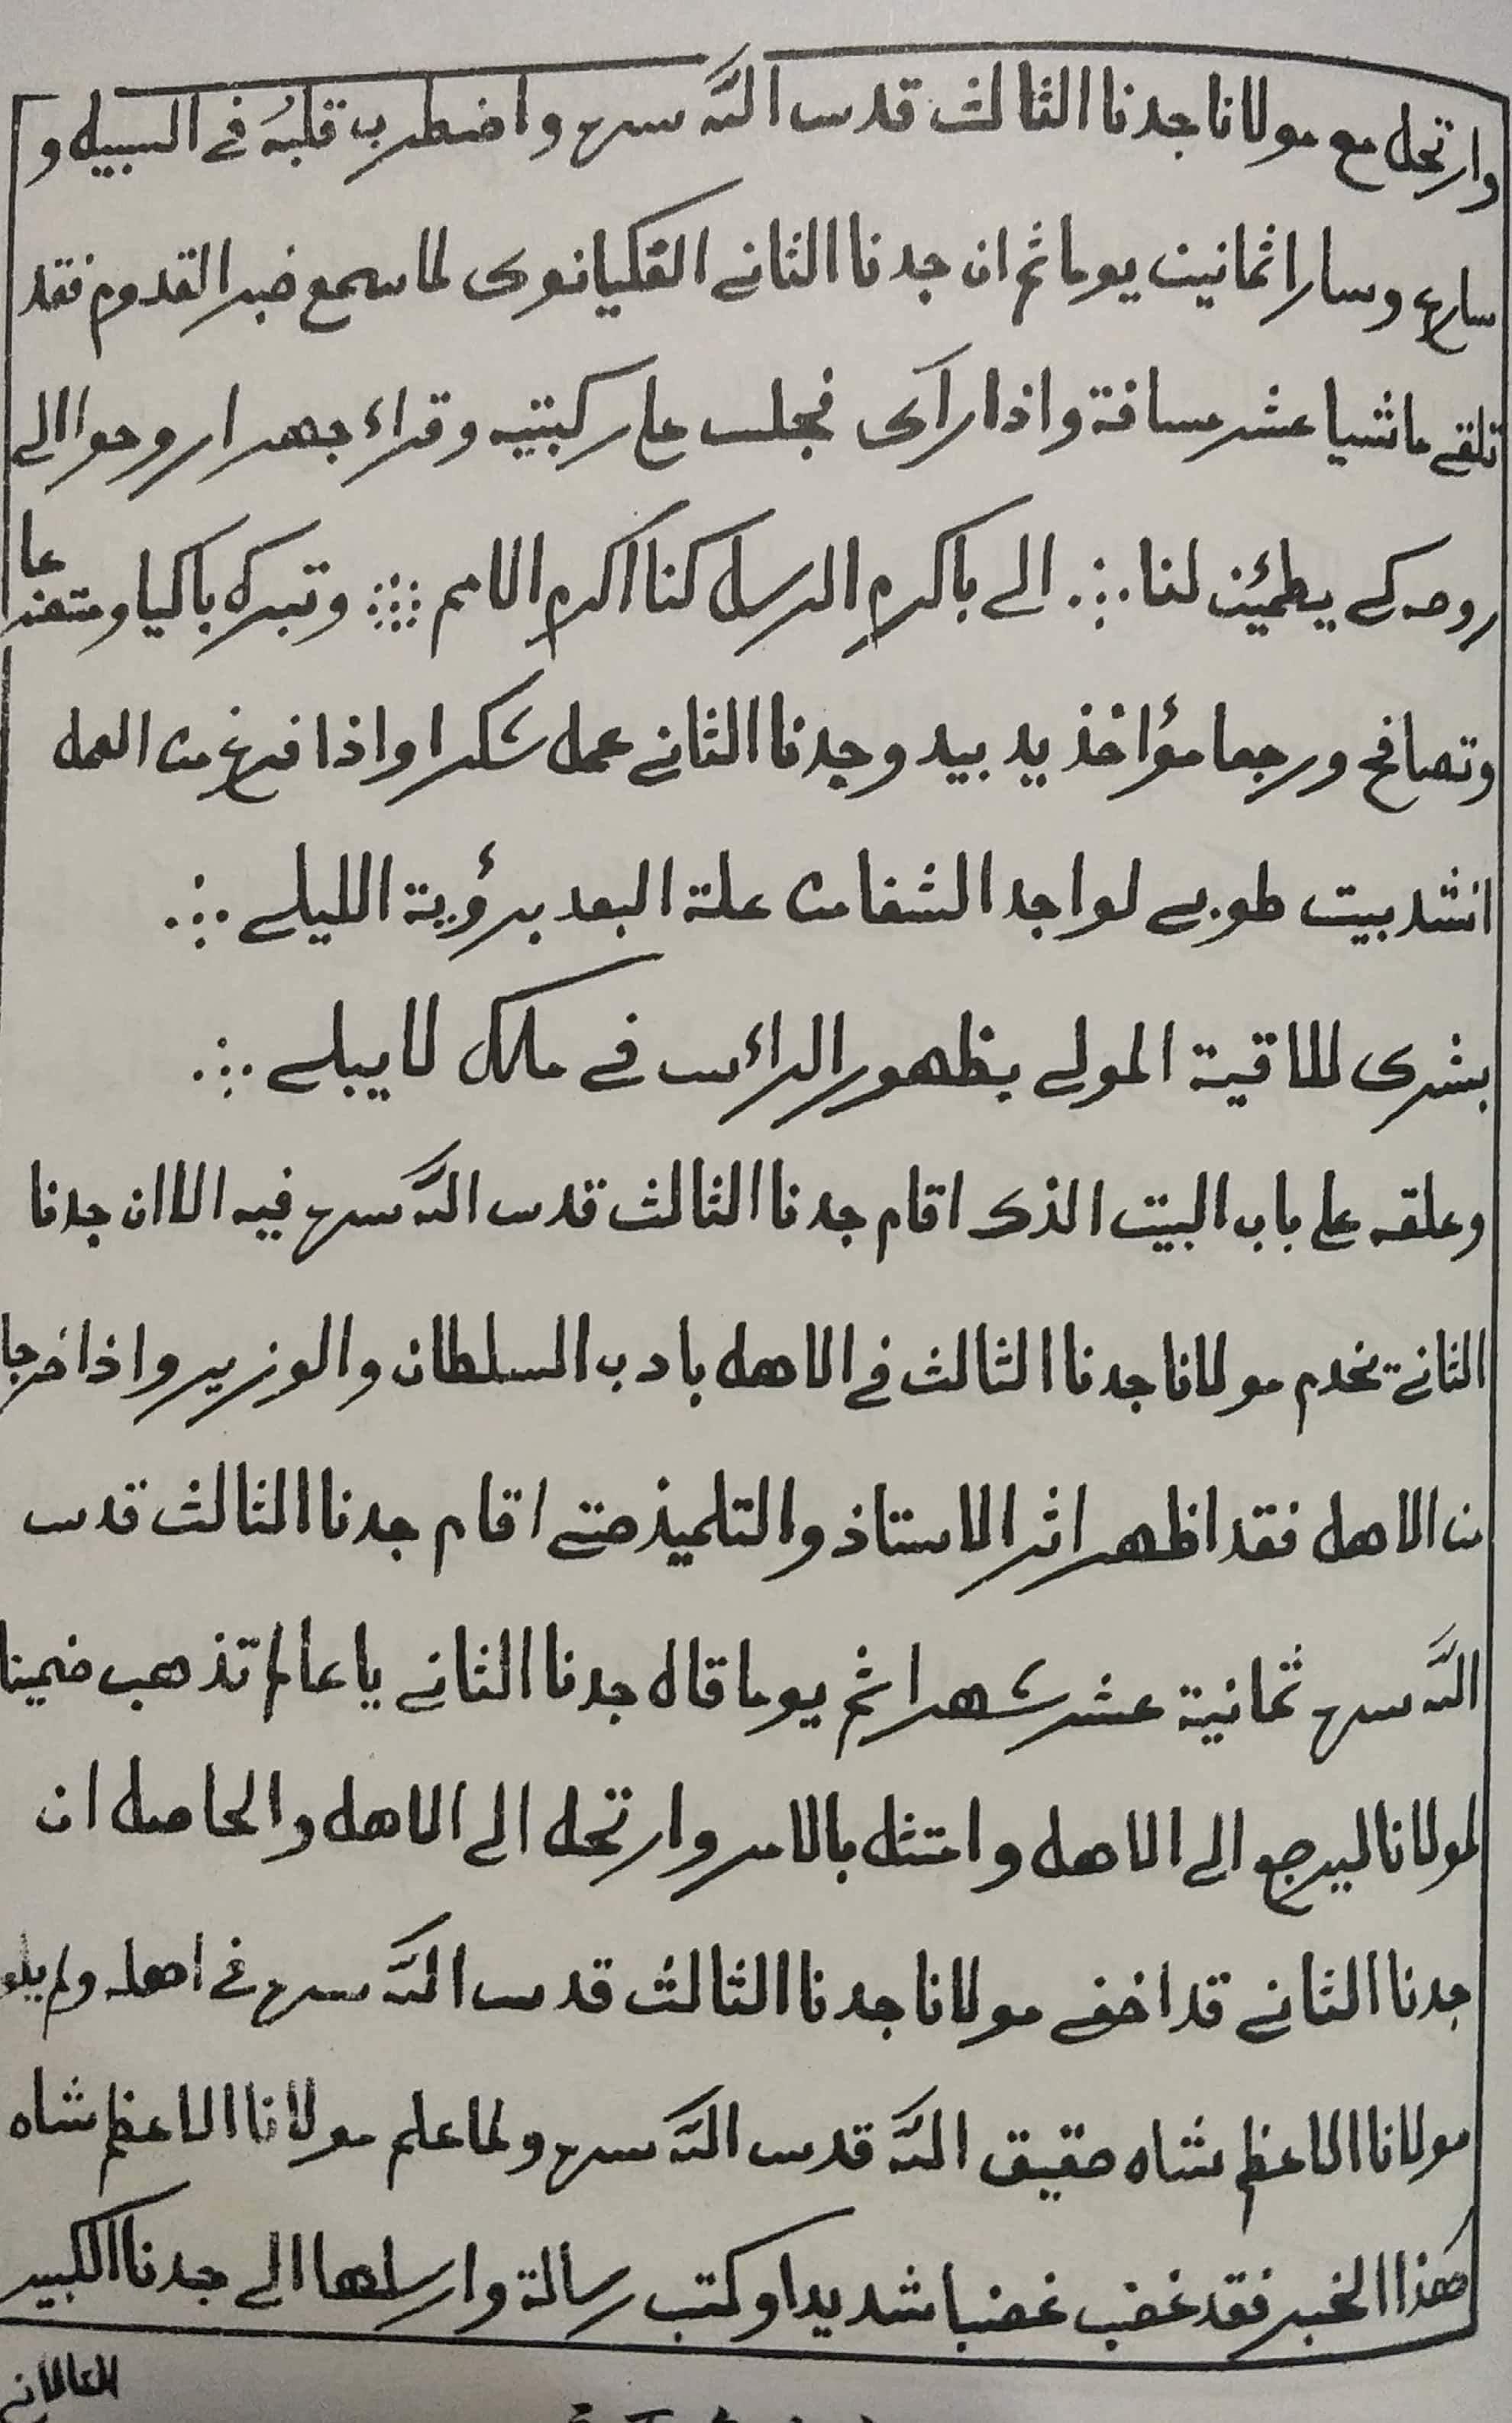 وارتحل مع مولانا جدنا الثالث قدس الله سره واضطرب قلبهُ في السبيل و
ساره وسارا ثمانين يوما ثم ان جدنا الثاني القكيانوى لما سمع خبر القدوم فقد
تلقى ماشيا عشر مسافة واذا رأى فجلس على ركبتيه وقراء جهرا روحوا الى
روحه كى يطمئن لنا ∴ الى باكرم الرسل كنا اكرم الامم ∴∴ وتبرك باكيا و
وتصافح ورجعا مؤاخذ يد بيد وجدنا الثاني عمل شكرا واذا فرغ من العمل
انشد بيت طوبى لواجد الشفا من علة البعد برؤية الليلى ∴
بشرى للاقية المولى بظهور الرائس في ملك لا يبلى ∴
وعلقه على باب البيت الذى اقام جدنا الثالث قدس الله سره فيه الا ان جدنا
الثاني يخدم مولانا جدنا الثالث في الاهل بادب السلطان والوزير واذا خرجا
من الاهل فقد اظهر اثر الاستاذ والتلميذ حتى اقام جدنا الثالث قدس
الله سره ثمانية عشر شهرا ثم يوما قال جدنا الثاني يا عالم تذهب ضمينا
لمولانا ليرجع الى الاهل وامتثل بالامر وارتحل الى الاهل والحاصل ان
جدنا الثاني قد اخفى مولانا جدنا الثالث قدس الله سره في اهله ولم
مولانا الاعظم شاه حقيق الله قدس الله سره ولما علم مولانا الاعظم شاه
هذا الخبر فقد غضب غضبا شديدا وكتب رسالة وارسلها الى جدنا الكبير